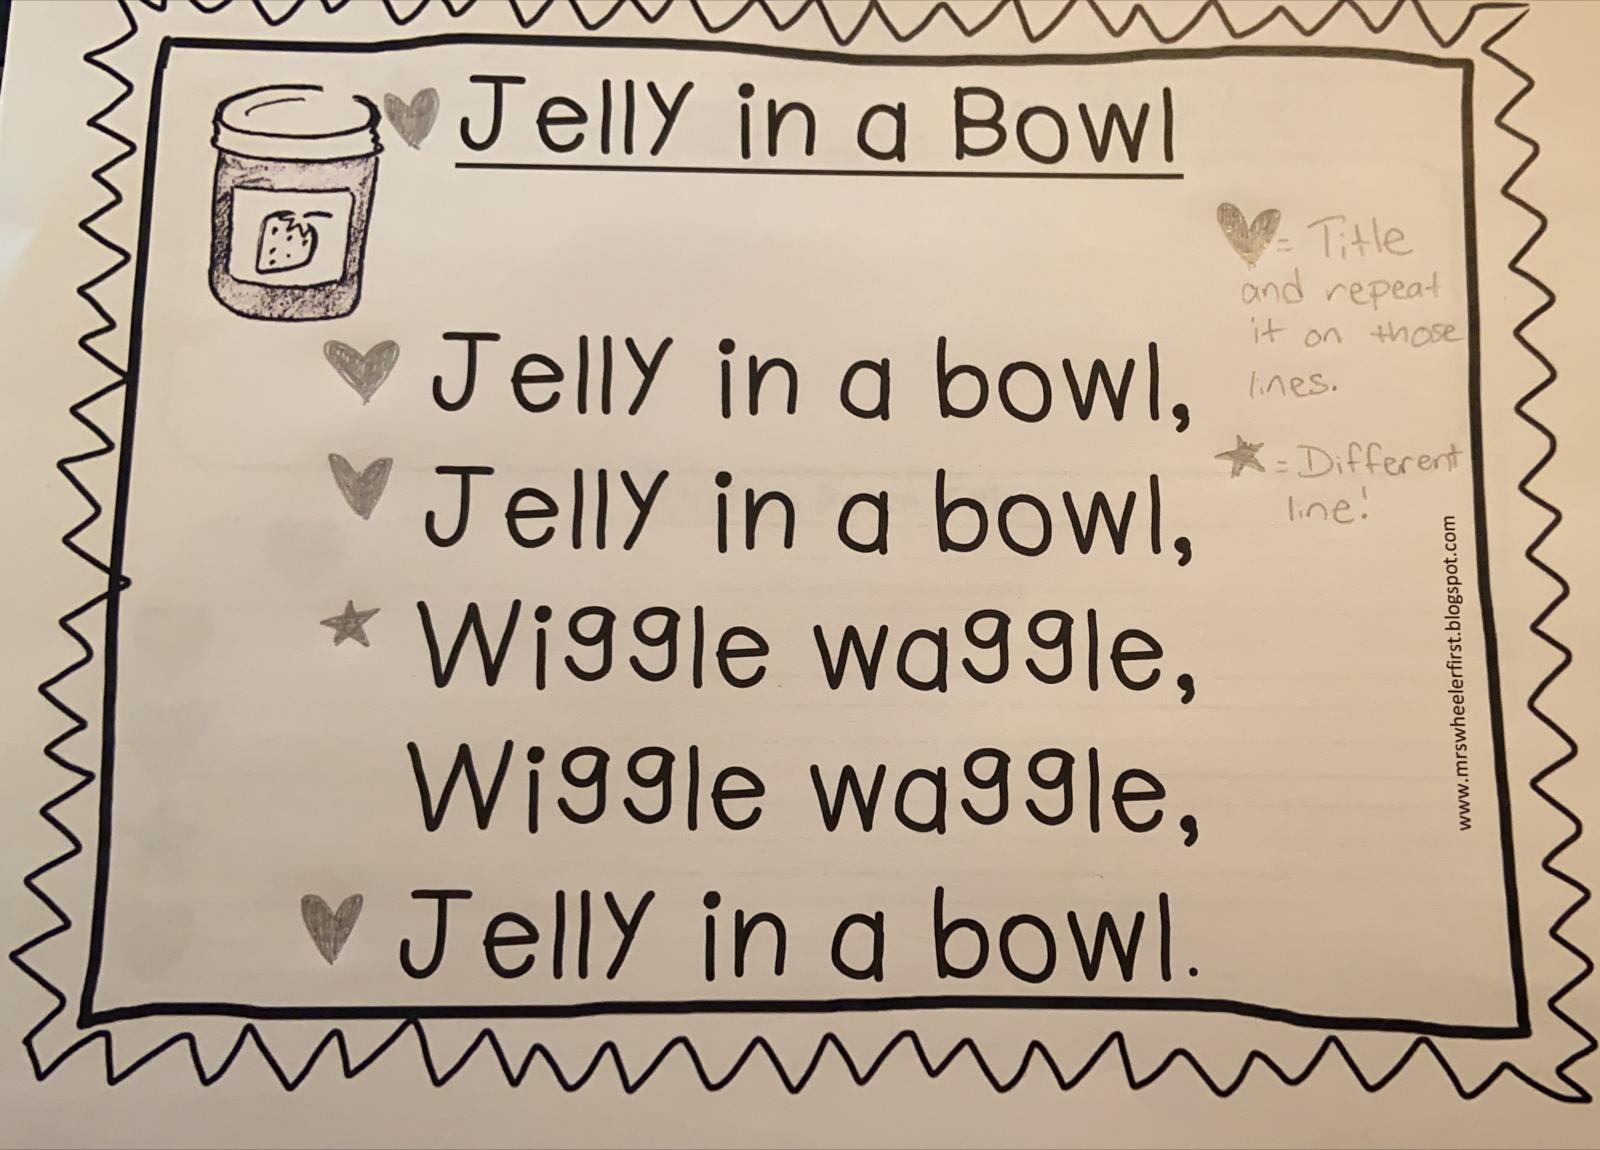 Jelly in a Bowl
= Title
and repeat
it on those
lines.
Jelly in a bowl,
Jelly in a bowl,
= Different
line!
Wiggle waggle,
Wiggle waggle,
Jelly in a bowl.
www.mrswheelerfirst.blogspot.com